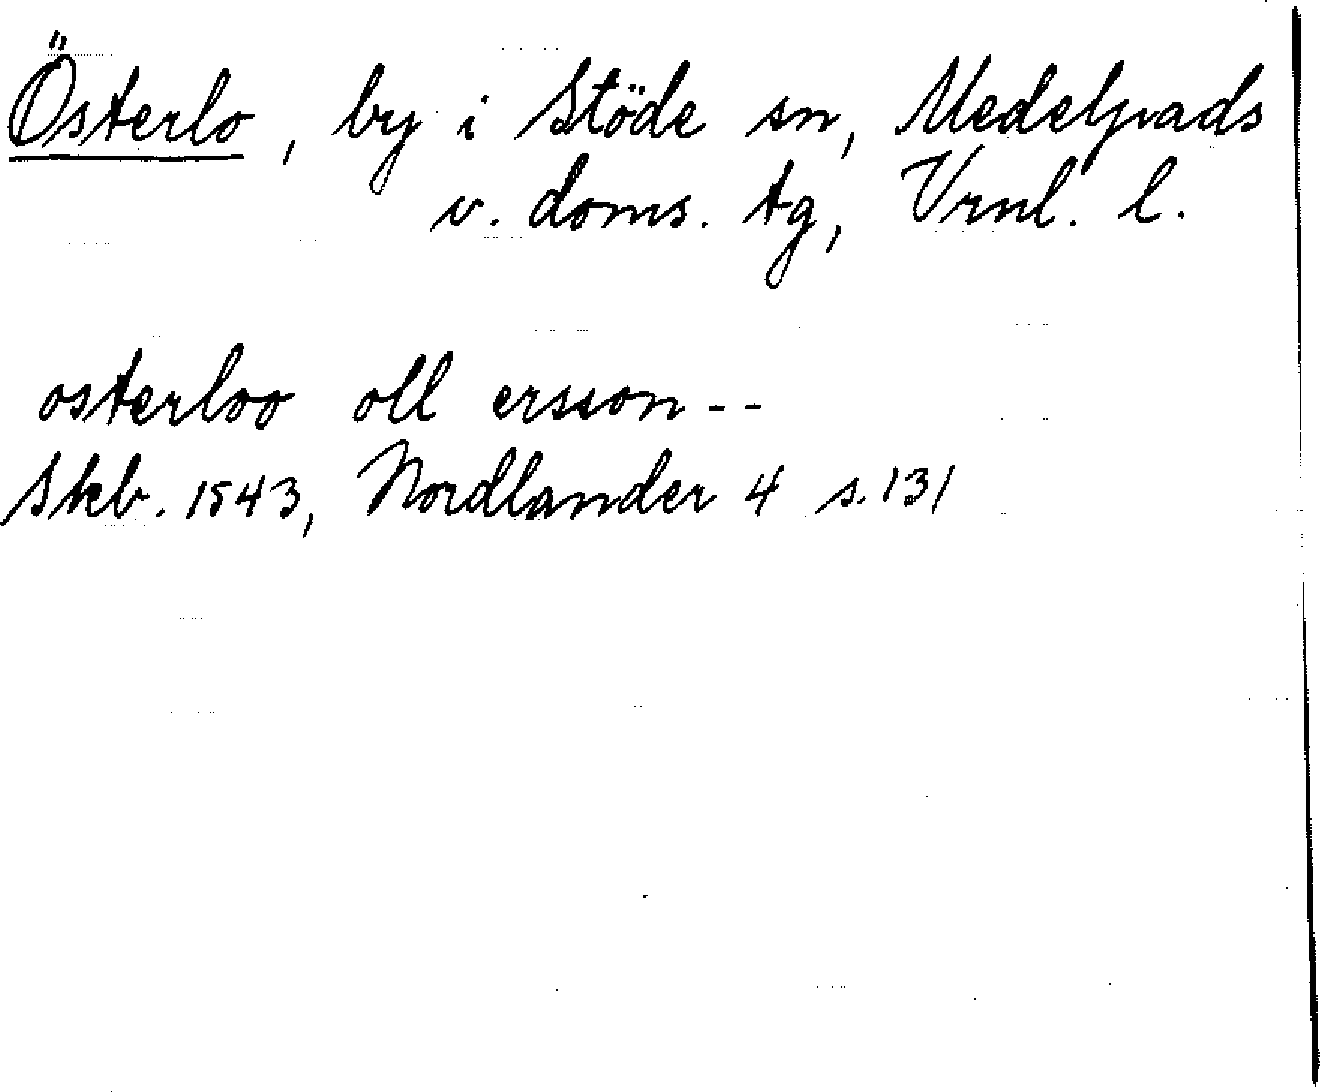 Österlo, by i Stöde sn, Medelpads
v. doms. tg, Vrnl. l.
osterloo oll ersson--
Skb. 1543, Nordlander 4 s. 131